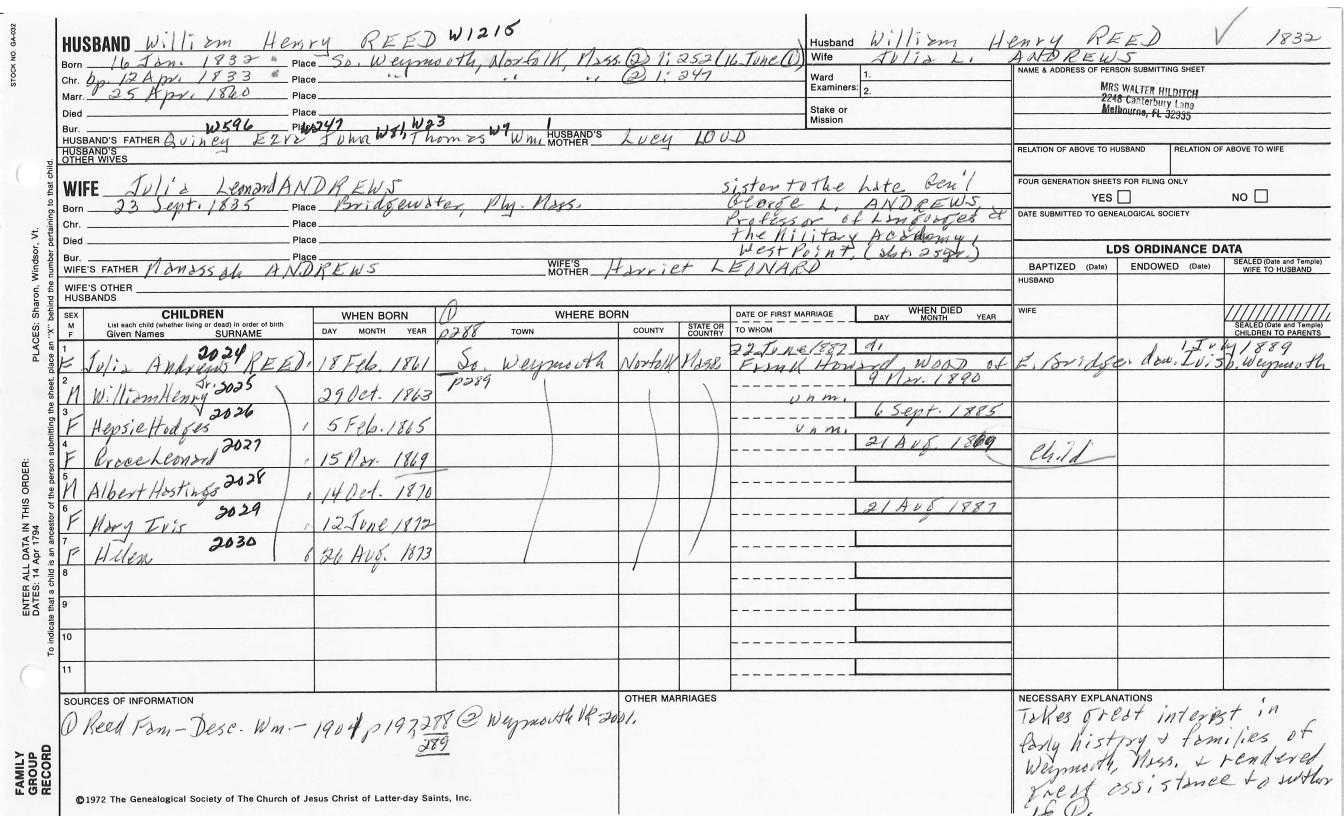 STOCK NO. GA-032
HUSBAND William Henry REED W1215
Born 16 Jan. 1832 Place So. Weymouth, Norfolk, Mass. (2) 1:252 (16 June (1))
Chr. bp. 12 Apr. 1833 Place " " " (2) 1:247
Marr. 25 Apr. 1860 Place
Died Place
Bur. Place
W596 W247 W81 W23 W9 1
HUSBAND'S FATHER Quincy Ezra John Thomas Wm. HUSBAND'S MOTHER Lucy LOUD
HUSBAND'S OTHER WIVES
Husband William Henry REED ✓ 1832
Wife Julia L. ANDREWS
Ward Examiners: 1.
2.
Stake or Mission
NAME & ADDRESS OF PERSON SUBMITTING SHEET
MRS WALTER HILDITCH
2248 Canterbury Lane
Melbourne, FL 32935
RELATION OF ABOVE TO HUSBAND RELATION OF ABOVE TO WIFE
FOUR GENERATION SHEETS FOR FILING ONLY
YES NO
DATE SUBMITTED TO GENEALOGICAL SOCIETY
WIFE Julia Leonard ANDREWS
Born 23 Sept. 1835 Place Bridgewater, Ply. Mass.
Chr. Place
Died Place
Bur. Place
sister to the late Gen'l
George L. ANDREWS,
Professor of Languages @
the Military Academy,
West Point, (abt. 25 yr.)
WIFE'S FATHER Manassah ANDREWS WIFE'S MOTHER Harriet LEONARD
WIFE'S OTHER HUSBANDS
LDS ORDINANCE DATA
BAPTIZED (Date) ENDOWED (Date) SEALED (Date and Temple) WIFE TO HUSBAND
HUSBAND
WIFE
SEALED (Date and Temple) CHILDREN TO PARENTS
SEX M F
CHILDREN
List each child (whether living or dead) in order of birth
Given Names SURNAME
WHEN BORN
DAY MONTH YEAR
(1) p288
WHERE BORN
TOWN COUNTY STATE OR COUNTRY
DATE OF FIRST MARRIAGE
TO WHOM
WHEN DIED
DAY MONTH YEAR
1 F Julia Andrews 2024 REED 18 Feb. 1861 So. Weymouth Norfolk Mass 22 June 1887 d. 1 July 1889
Frank Howard WOOD of E. Bridge. dau. Ivis b. Weymouth
p289
2 M William Henry Jr. 2025 29 Oct. 1863 unm. 9 Mar. 1890
3 F Hepsie Hodges 2026 5 Feb. 1865 unm. 6 Sept. 1885
4 F Grace Leonard 2027 15 Mar. 1869 21 Aug 1869 Child
5 M Albert Hastings 2028 14 Oct. 1870
6 F Mary Ivis 2029 12 June 1872 21 Aug 1887
7 F Helen 2030 26 Aug. 1873
8
9
10
11
SOURCES OF INFORMATION
(1) Reed Fam - Desc. Wm. - 1901 p 197, 288 @ Weymouth VR 2001.
289
OTHER MARRIAGES
NECESSARY EXPLANATIONS
Takes great interest in
Early history & families of
Weymouth, Mass. & rendered
great assistance to author
of (1).
©1972 The Genealogical Society of The Church of Jesus Christ of Latter-day Saints, Inc.
FAMILY GROUP RECORD
ENTER ALL DATA IN THIS ORDER:
DATES: 14 Apr 1794
PLACES: Sharon, Windsor, Vt.
To indicate that a child is an ancestor of the person submitting the sheet, place an "X" behind the number pertaining to that child.